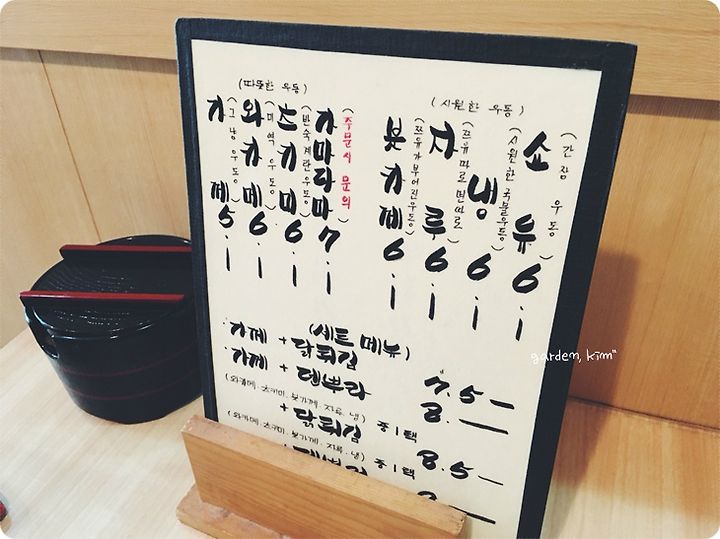 (시원한 우동)
쇼유 (간장 우동) 6.-
냉 (시원한 국물우동) 6.-
자루 (쯔유따로면따로) 6.-
붓카케 (쯔유가부어진우동) 6.-
(따뜻한 우동)
가마다마 (주문시 문의) 7.-
츠키미 (반숙계란우동) 6.-
와카메 (미역우동) 6.-
가께 (그냥우동) 5.-
(세트 메뉴)
·가께 + 닭튀김 7.5-
·가께 + 덴뿌라 8.-
(와카메.츠키미.붓가께.자루.냉) 중1택
+ 닭튀김 8.5-
(와카메.츠키미.붓가께.자루.냉) 중1택
garden, kim"